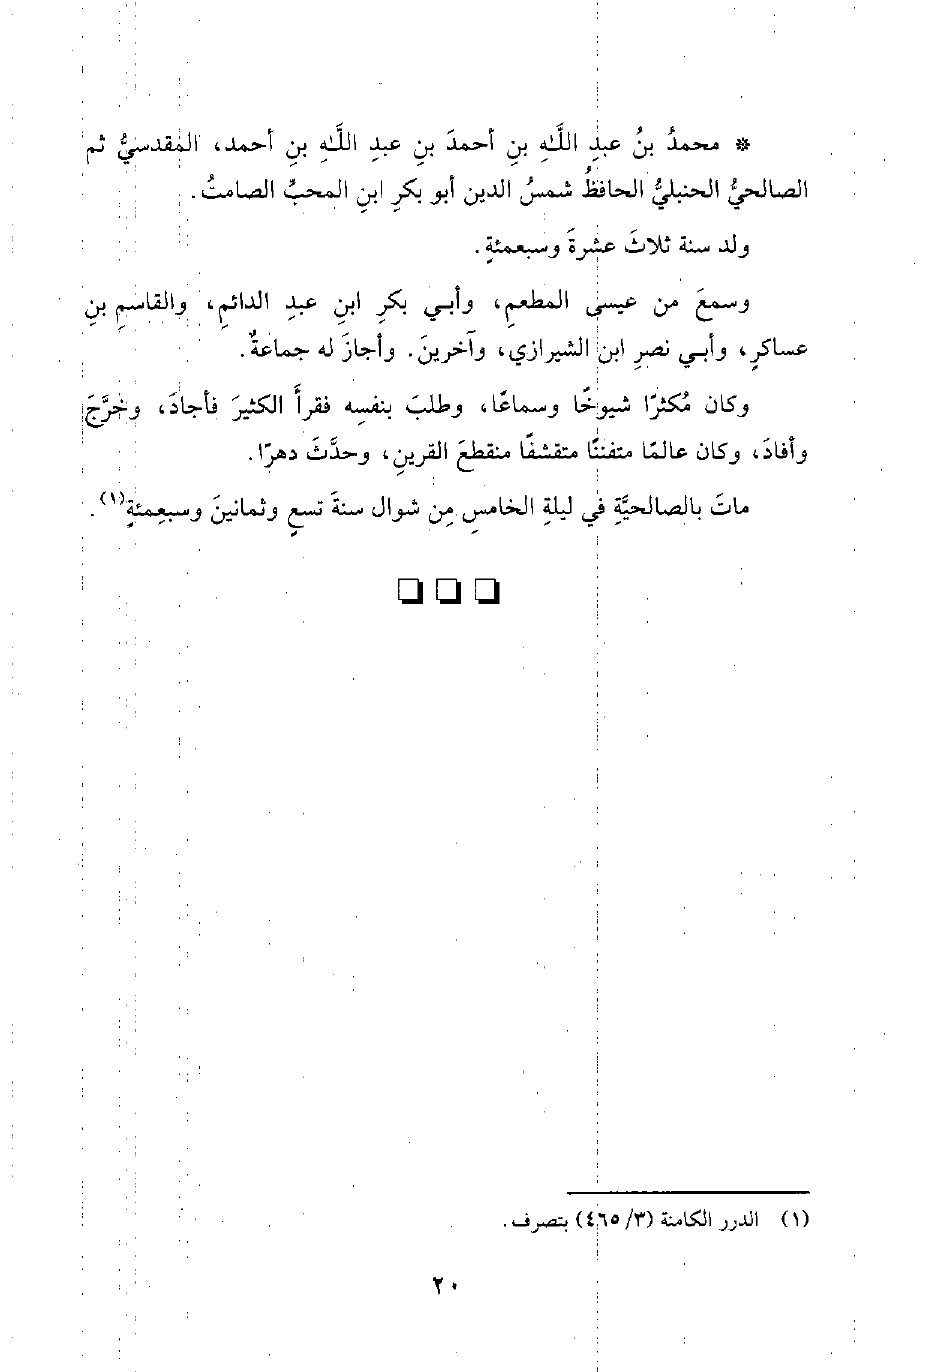 * محمدُ بنُ عبدِ اللَّهِ بنِ أحمدَ بنِ عبدِ اللَّهِ بنِ أحمد، المقدسيُّ ثم
الصالحيُّ الحنبليُّ الحافظُ شمسُ الدين أبو بكرِ ابنِ المحبِّ الصامتُ.
ولد سنة ثلاثَ عشرةَ وسبعمئةٍ.
وسمعَ من عيسى المطعمِ، وأبي بكرِ ابنِ عبدِ الدائمِ، والقاسمِ بنِ
عساكرٍ، وأبي نصرِ ابن الشيرازي، وآخرينَ. وأجازَ له جماعةٌ.
وكان مُكثرًا شيوخًا وسماعًا، وطلبَ بنفسِه فقرأَ الكثيرَ فأجادَ، وخرَّجَ
وأفادَ، وكان عالمًا متفننًا متقشفًا منقطعَ القرينِ، وحدَّثَ دهرًا.
ماتَ بالصالحيَّةِ في ليلةِ الخامسِ مِن شوال سنةَ تسعٍ وثمانينَ وسبعِمئةٍ(١).
(١) الدرر الكامنة (٣/ ٤٦٥) بتصرف.
٢٠